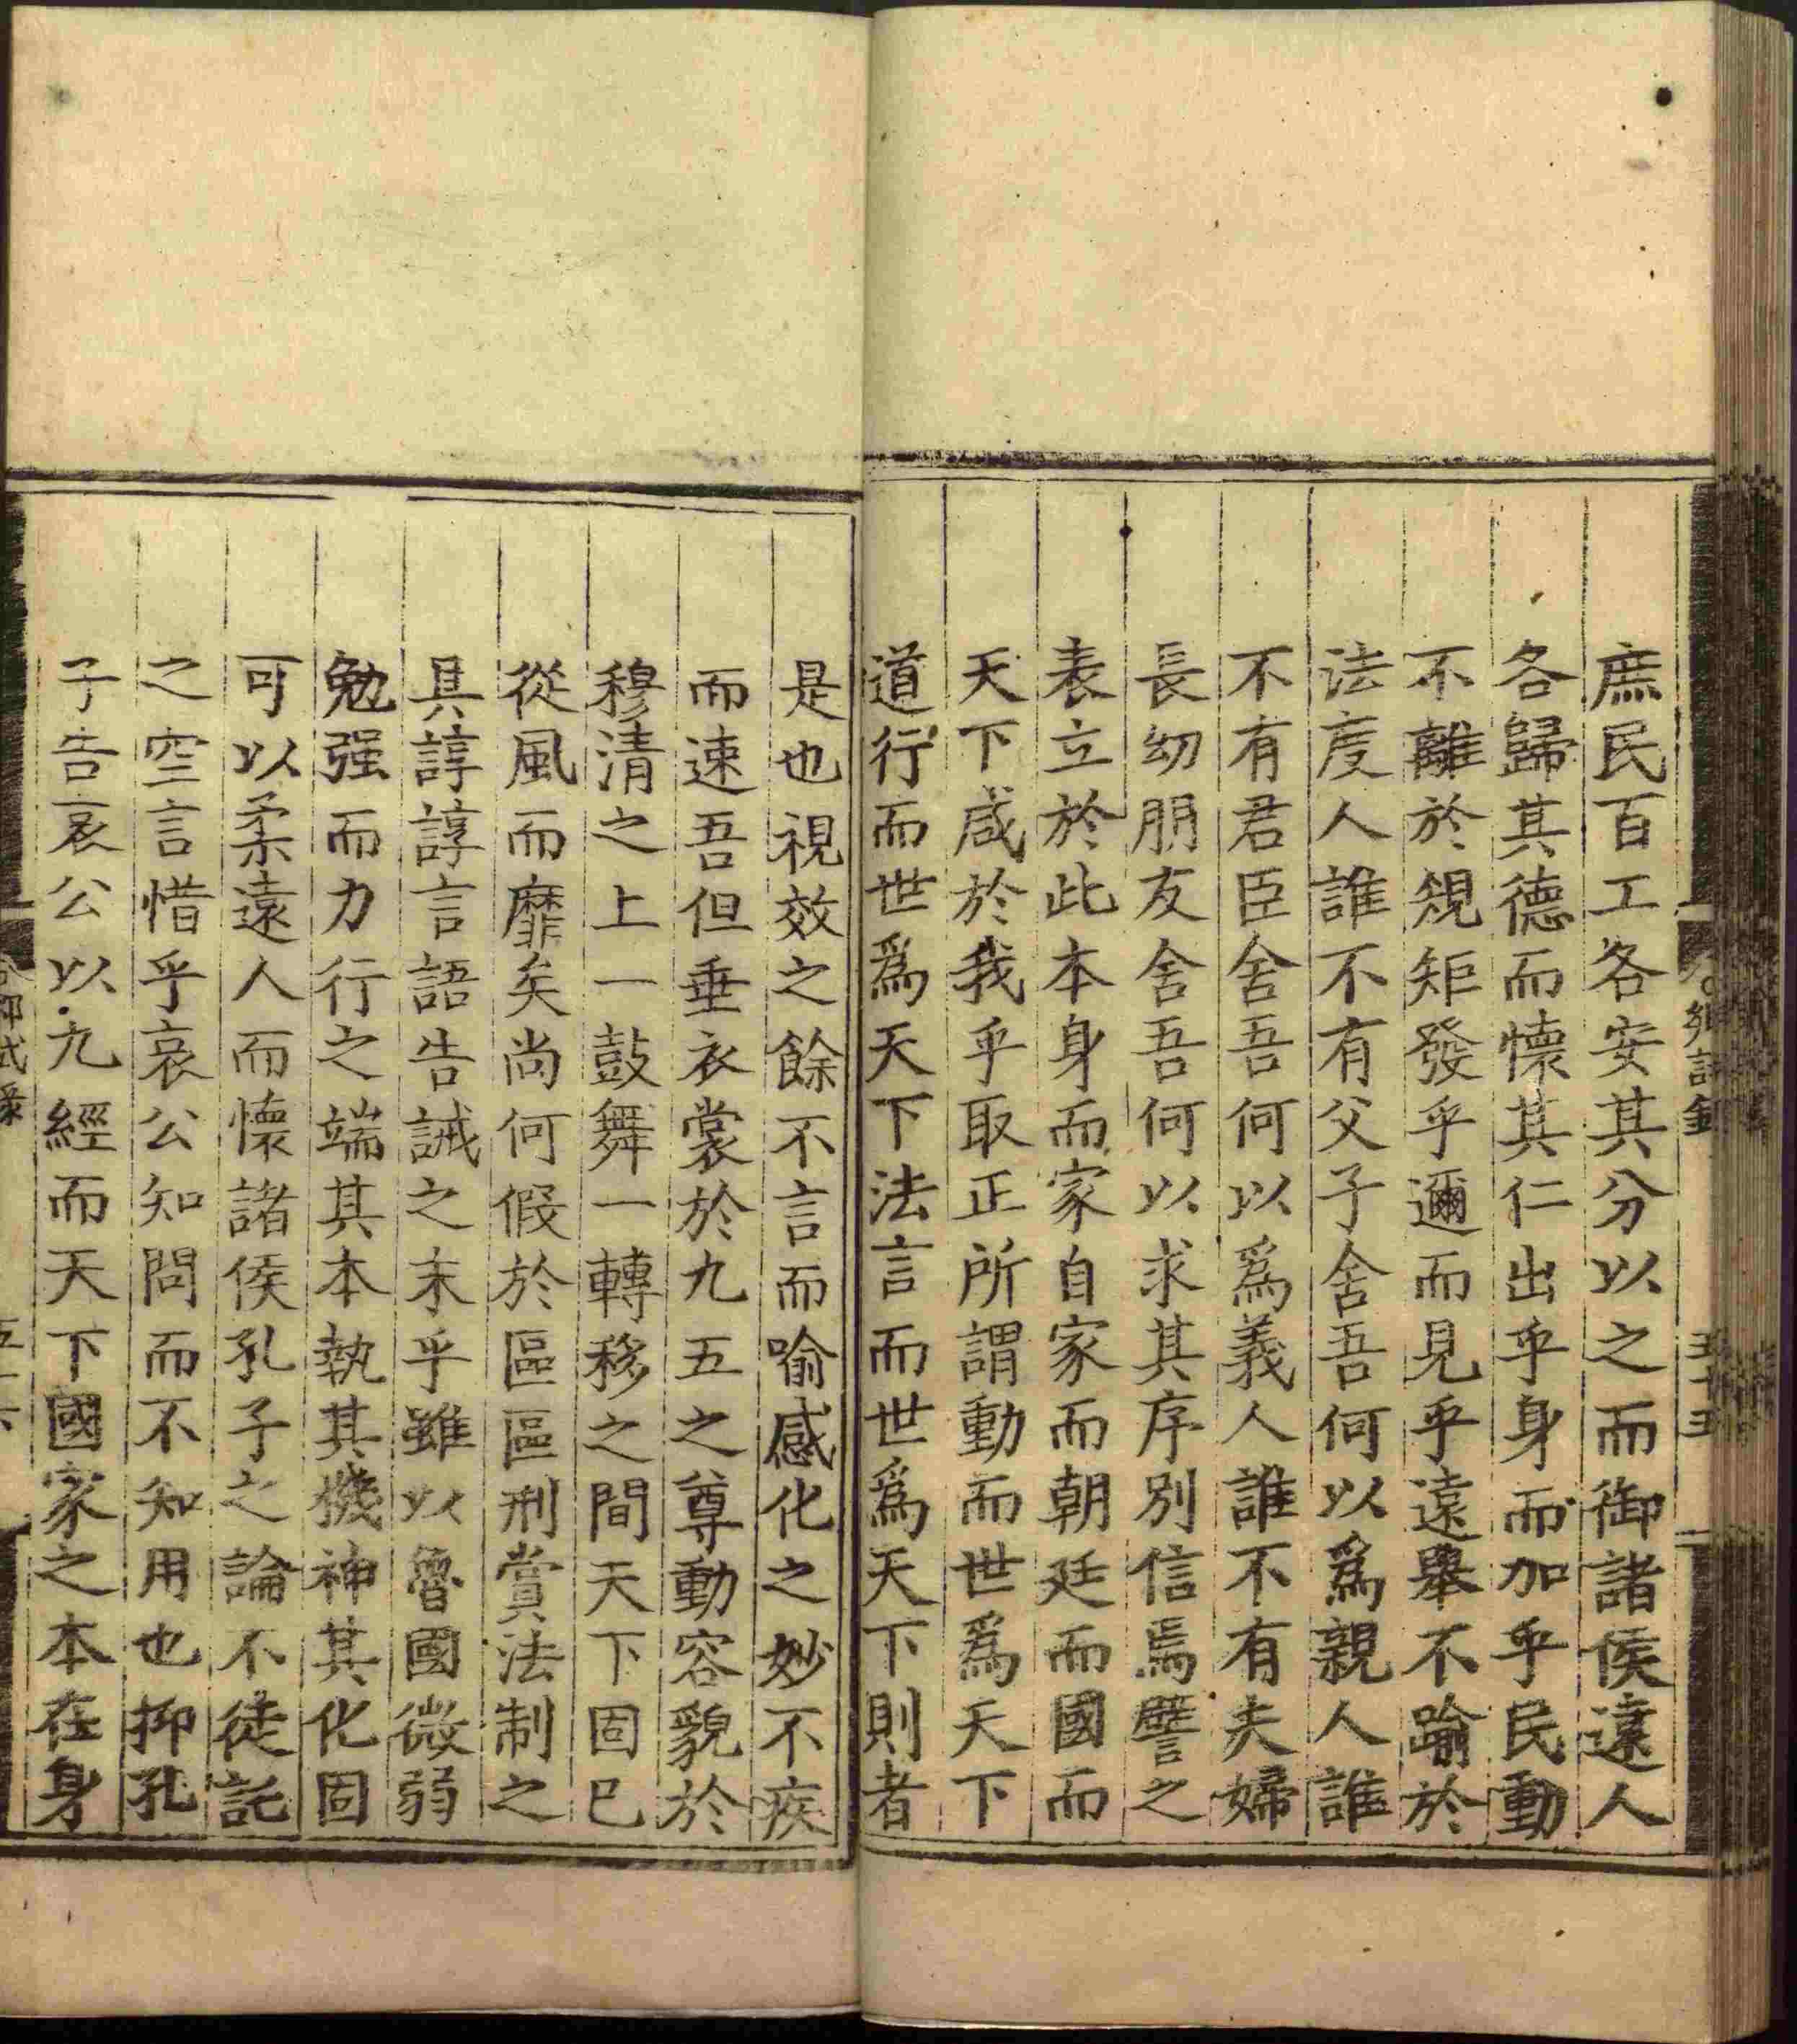 庶民百工各安其分以之而御諸侯遠人
各歸其德而懷其仁出乎身而加乎民動
不離於規矩發乎邇而見乎遠舉不踰於
法度人誰不有父子舍吾何以爲親人誰
不有君臣舍吾何以爲義人誰不有夫婦
長幼朋友舍吾何以求其序別信焉譬之
表立於此本身而家自家而朝廷而國而
天下咸於我乎取正所謂動而世爲天下
道行而世爲天下法言而世爲天下則者
是也視效之餘不言而喻感化之妙不疾
而速吾但垂衣裳於九五之尊動容貌於
穆清之上一鼓舞一轉移之間天下固已
從風而靡矣尚何假於區區刑賞法制之
具諄諄言語告誡之末乎雖以魯國微弱
勉强而力行之端其本執其機神其化固
可以柔遠人而懷諸侯孔子之論不徒託
之空言惜乎哀公知問而不知用也抑孔
子告哀公以九經而天下國家之本在身
五十五